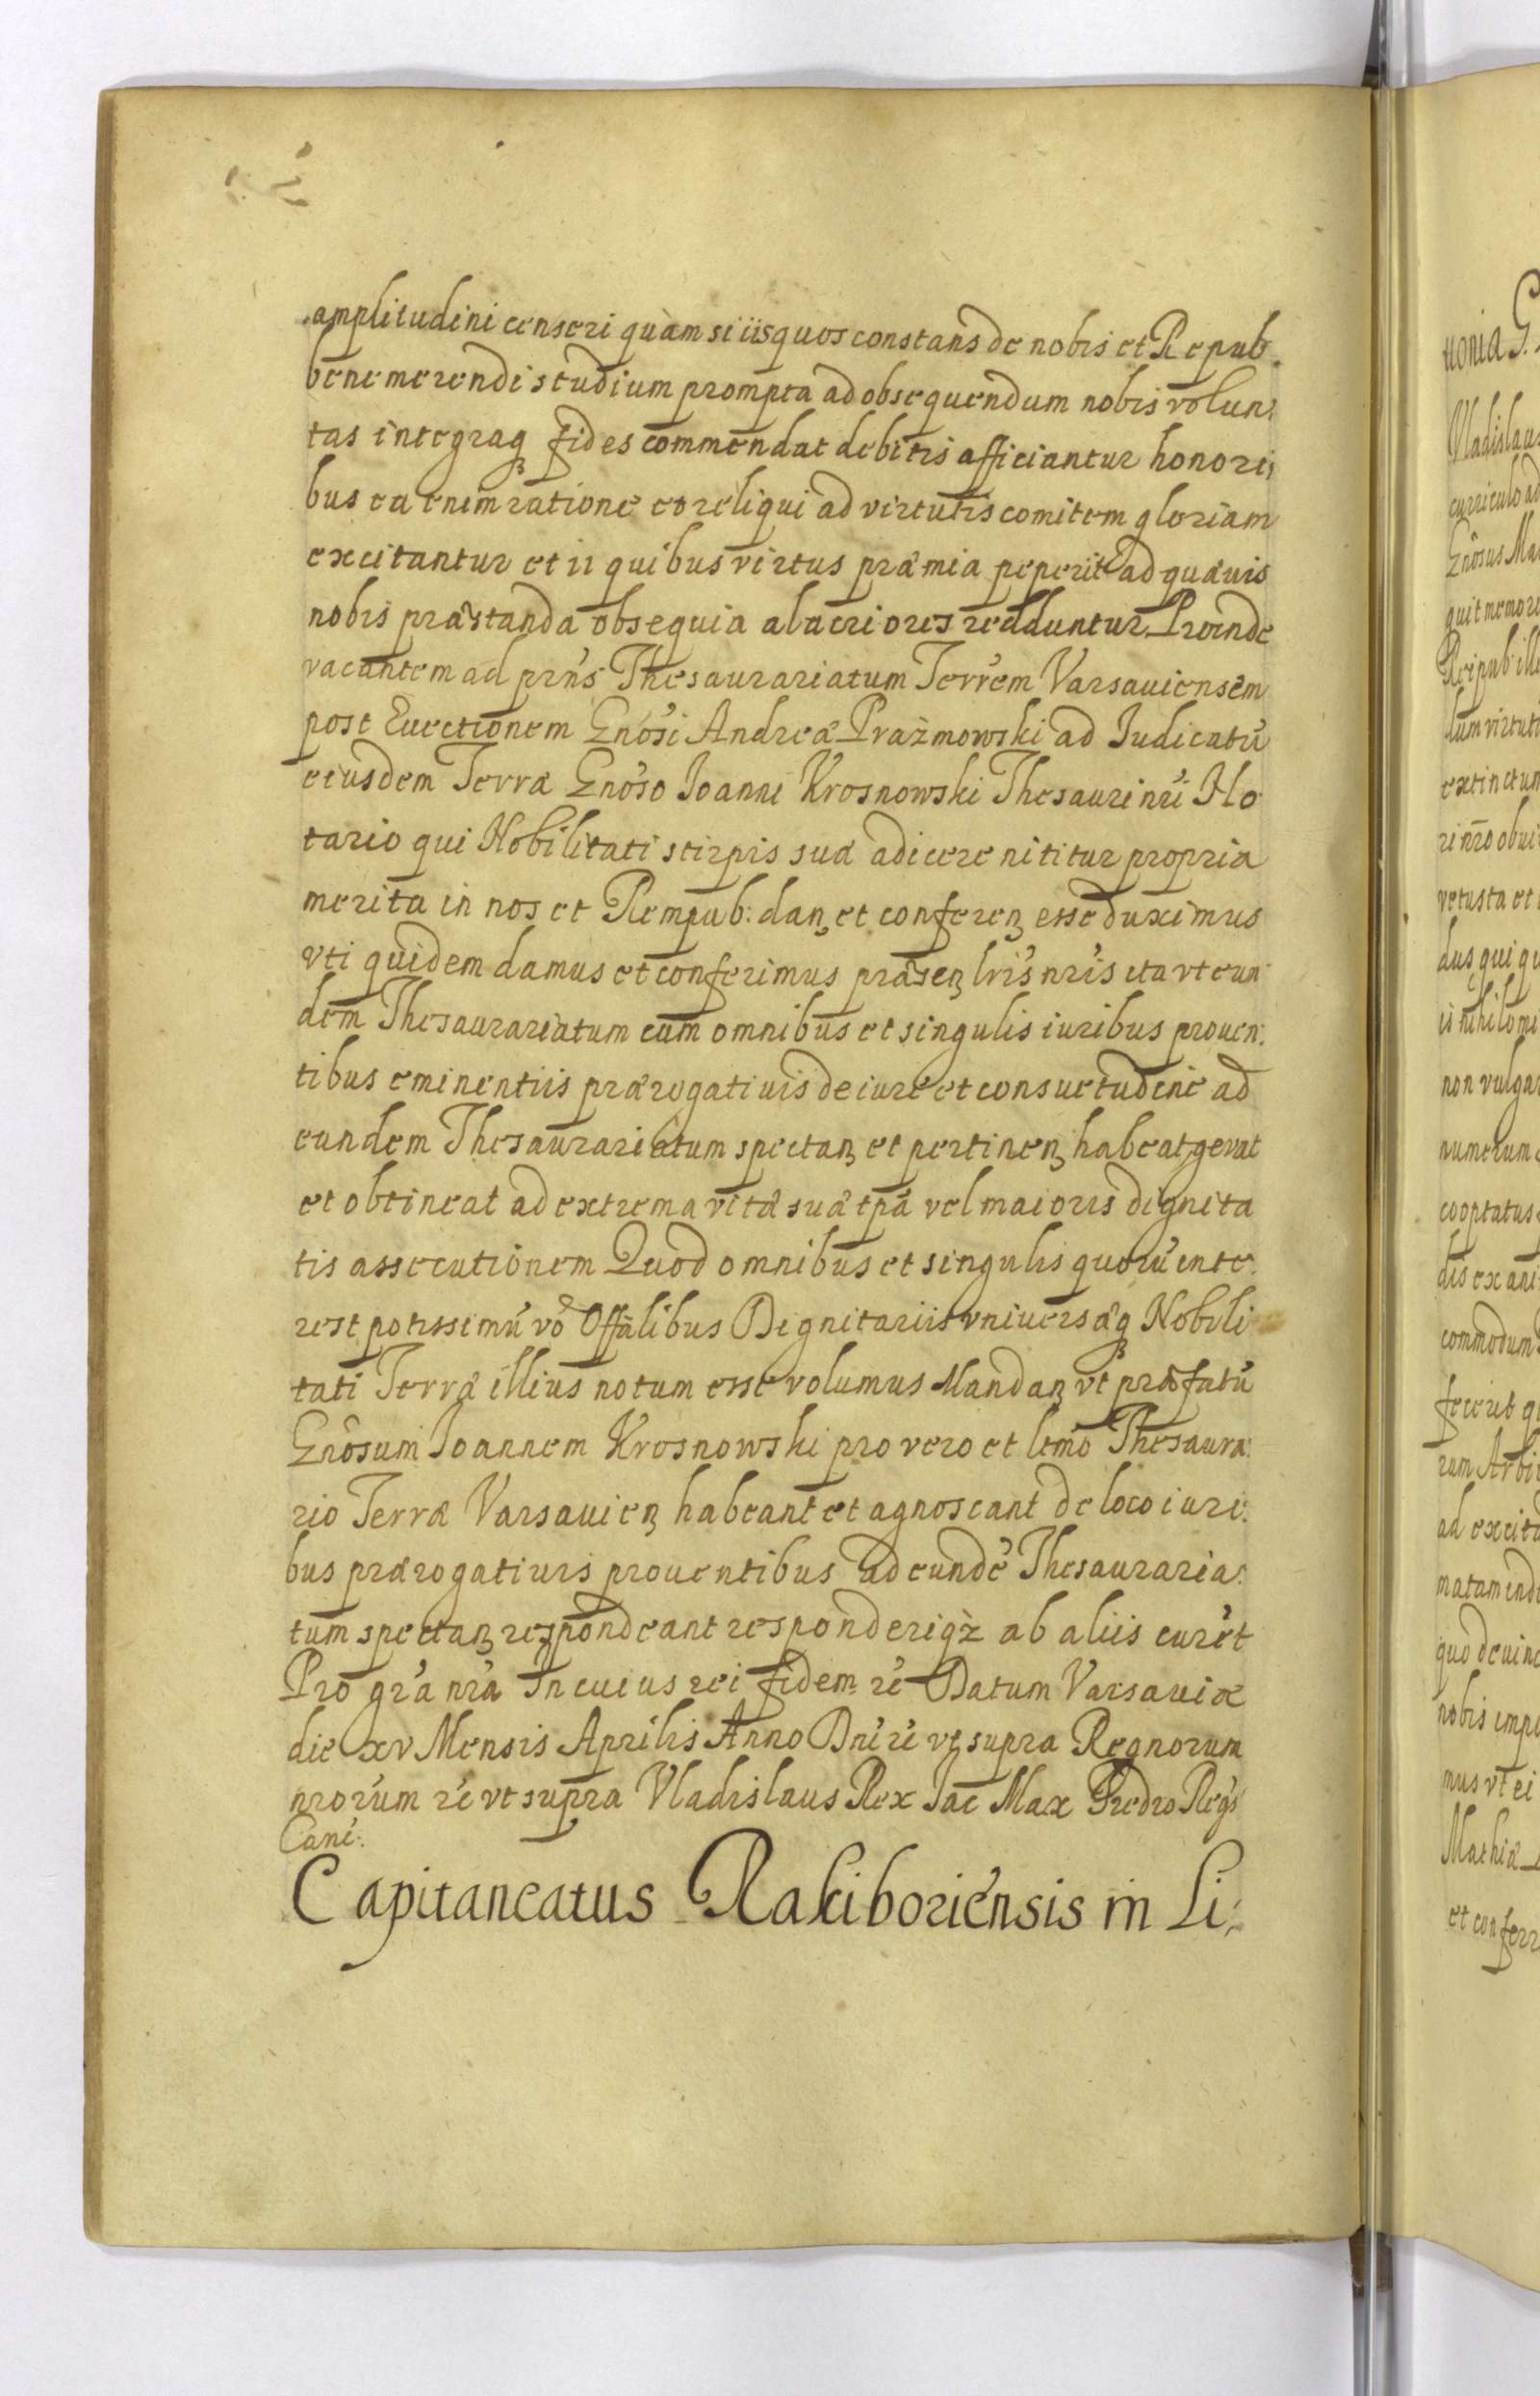 amplitudini censeri quàm si iis quos constans de nobis et Repub.
bene merendi studium prompta ad obsequendum nobis volun:
tas integraqꝫ fides commendat debitis afficiantur honori;
bus ea enim ratione et reliqui ad virtutis comitem gloriam
excitantur et ii quibus virtus præmia peperit ad quævis
nobis præstanda obsequia alacriores redduntur Proinde
vacantem ad prńs Thesaurariatum Terrem Varsauiensem
post Euectionem Gnósi Andreæ Prażmowski ad Iudicatū
eiusdem Terræ Gnóso Ioanni Krosnowski Thesauri nrí No
tario qui Nobilitati stirpis suæ adicere nititur propria
merita in nos et Rempub: danꝫ et conferenꝫ esse duximus
vti quidem damus et conferimus præsenꝫ lrís nrís ita vt eun
dem Thesaurariatum cum omnibus et singulis iuribus prouen:
tibus eminentiis prærogatiuis de iure et consuetudine ad
eundem Thesaurariatum spectanꝫ et pertinenꝫ habeat gerat
et obtineat ad extrema vitæ suæ tpá vel maioris dignita
tis assecutionem Quod omnibus et singulis quorū inte:
rest potissimū vó Offálibus Dignitariis vniuersæqꝫ Nobili
tati Terræ illius notum esse volumus Mandanꝫ vt præfatū
Gnósum Ioannem Krosnowski pro vero et ltmo Thesaura:
rio Terræ Varsauienꝫ habeant et agnoscant de loco iuri:
bus prærogatiuis prouentibus ad eundē Thesauraria:
tum spectanꝫ respondeant responderiqꝫ ab aliis curēt
Pro grá nrá In cuius rei fidem ré Datum Varsauiæ
die xv Mensis Aprilis Anno Dní ré vt supra Regnorum
nrorúm ré vt supra Vladislaus Rex Iac Max Fredro Regś
Canć:
Capitaneatus Rakiboriensis in Li:
uonia G.
Vladislaus
curriculo ad
Gnósus Ma
quit memori
Reipub ill
dum virtuti
extinctum
ri nrō obui
vetusta et
dus qui qu
is nihilomi
non vulgar
numerum
cooptatus
dis ex ani
commodum
fecerit q
rum Arbi
ad excita
matam ind
quo deuinc
nobis impe
mus vt ei
Mathiæ
et conferr